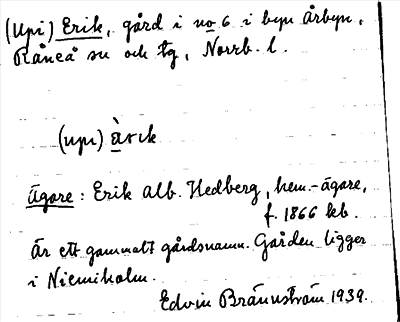 (upi) Erik, gård i no 6 i byn Årbyn,
Råneå sn och tg, Norrb. l.
(upi) àrik
Ägare: Erik Alb. Hedberg, hem.-ägare,
f. 1866 kb.
Är ett gammalt gårdsnamn. Gården ligger
i Niemiholm.
Edvin Brännström 1939.